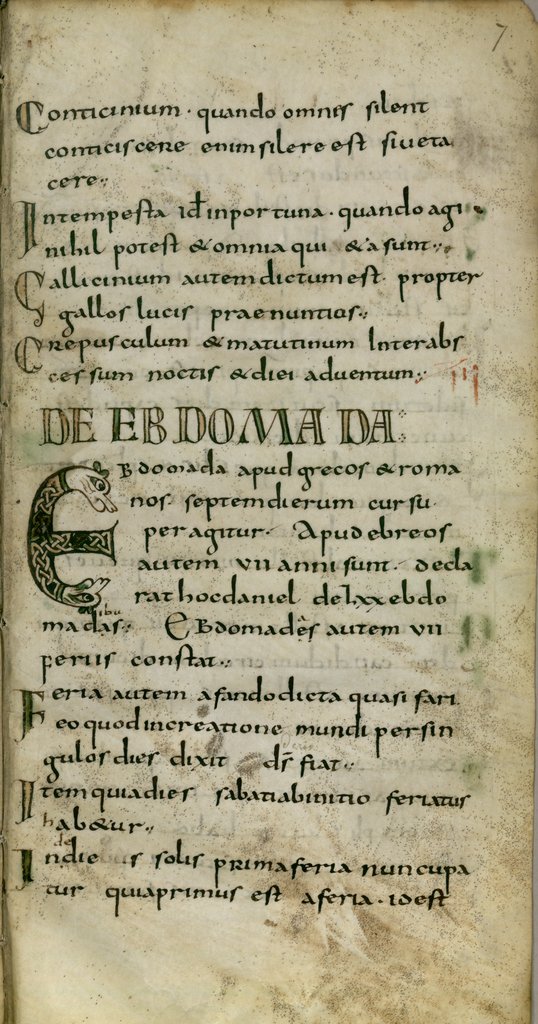 7
Conticinium · quando omnes silent
conticiscere enim silere est sive ta
cere·,
Intempesta id÷ inportuna · quando agi
nihil potest & omnia qui&a sunt·,
Gallicinium autem dictum est · propter
gallos lucis praenuntios·,
Crepusculum & matutinum Inter abs
cessum noctis & diei adventum·,
DE EBDOMADA
Ebdomada apud grecos & roma
nos septem dierum cursu
peragitur · Apud ebreos
autem VII anni sunt · decla
rat hoc daniel de lxx ebdo
madas·, Ebdomades autem VII
feriis constat·,
Feria autem a fando dicta quasi fari
eo quod in creatione mundi per sin
gulos dies dixit ds fiat·,
Item quia dies sabati ab initio feriatus
hab&ur·,
Inde dies solis prima feria nuncupa
tur quia primus est a feria · idest